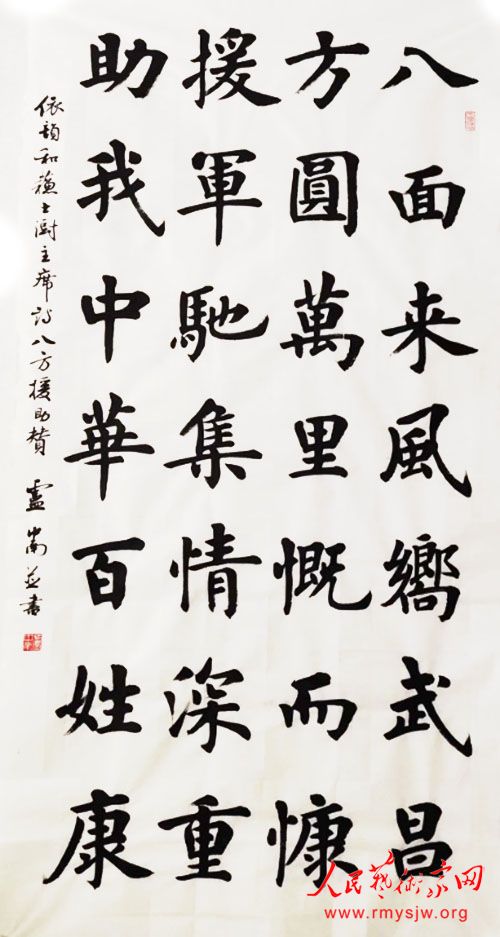 八面来風嚮武昌
方圓萬里慨而慷
援軍馳集情深重
助我中華百姓康
依韻和蘇士澍主席詩八方援助贊 盧嵩並書
人民藝術家网
www.rmysjw.org